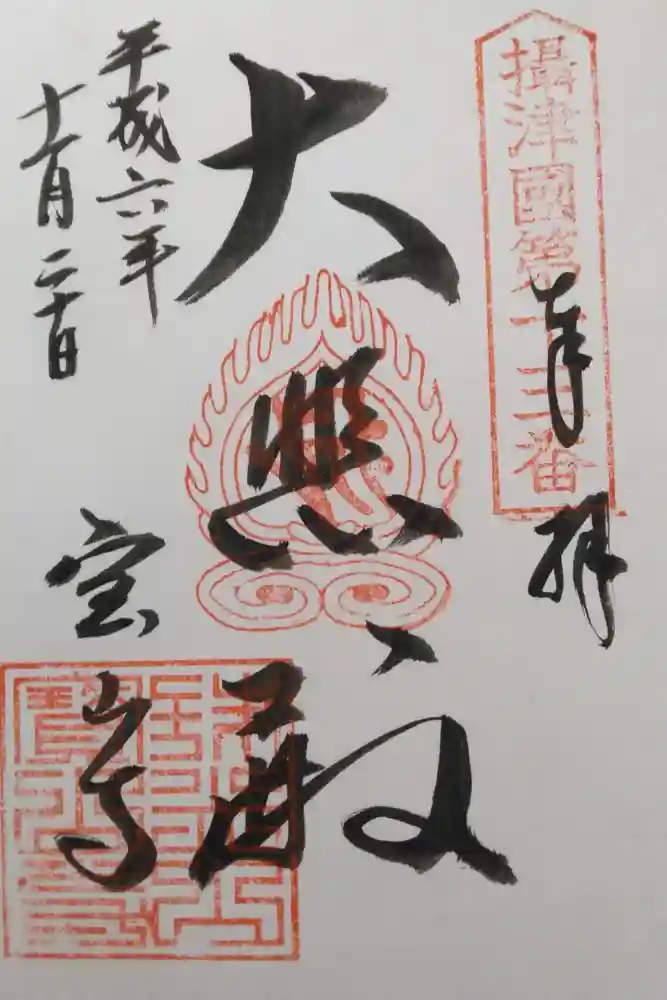 攝津國第十三番
奉拝
大悲殿
平成六年
十一月二十日
宝